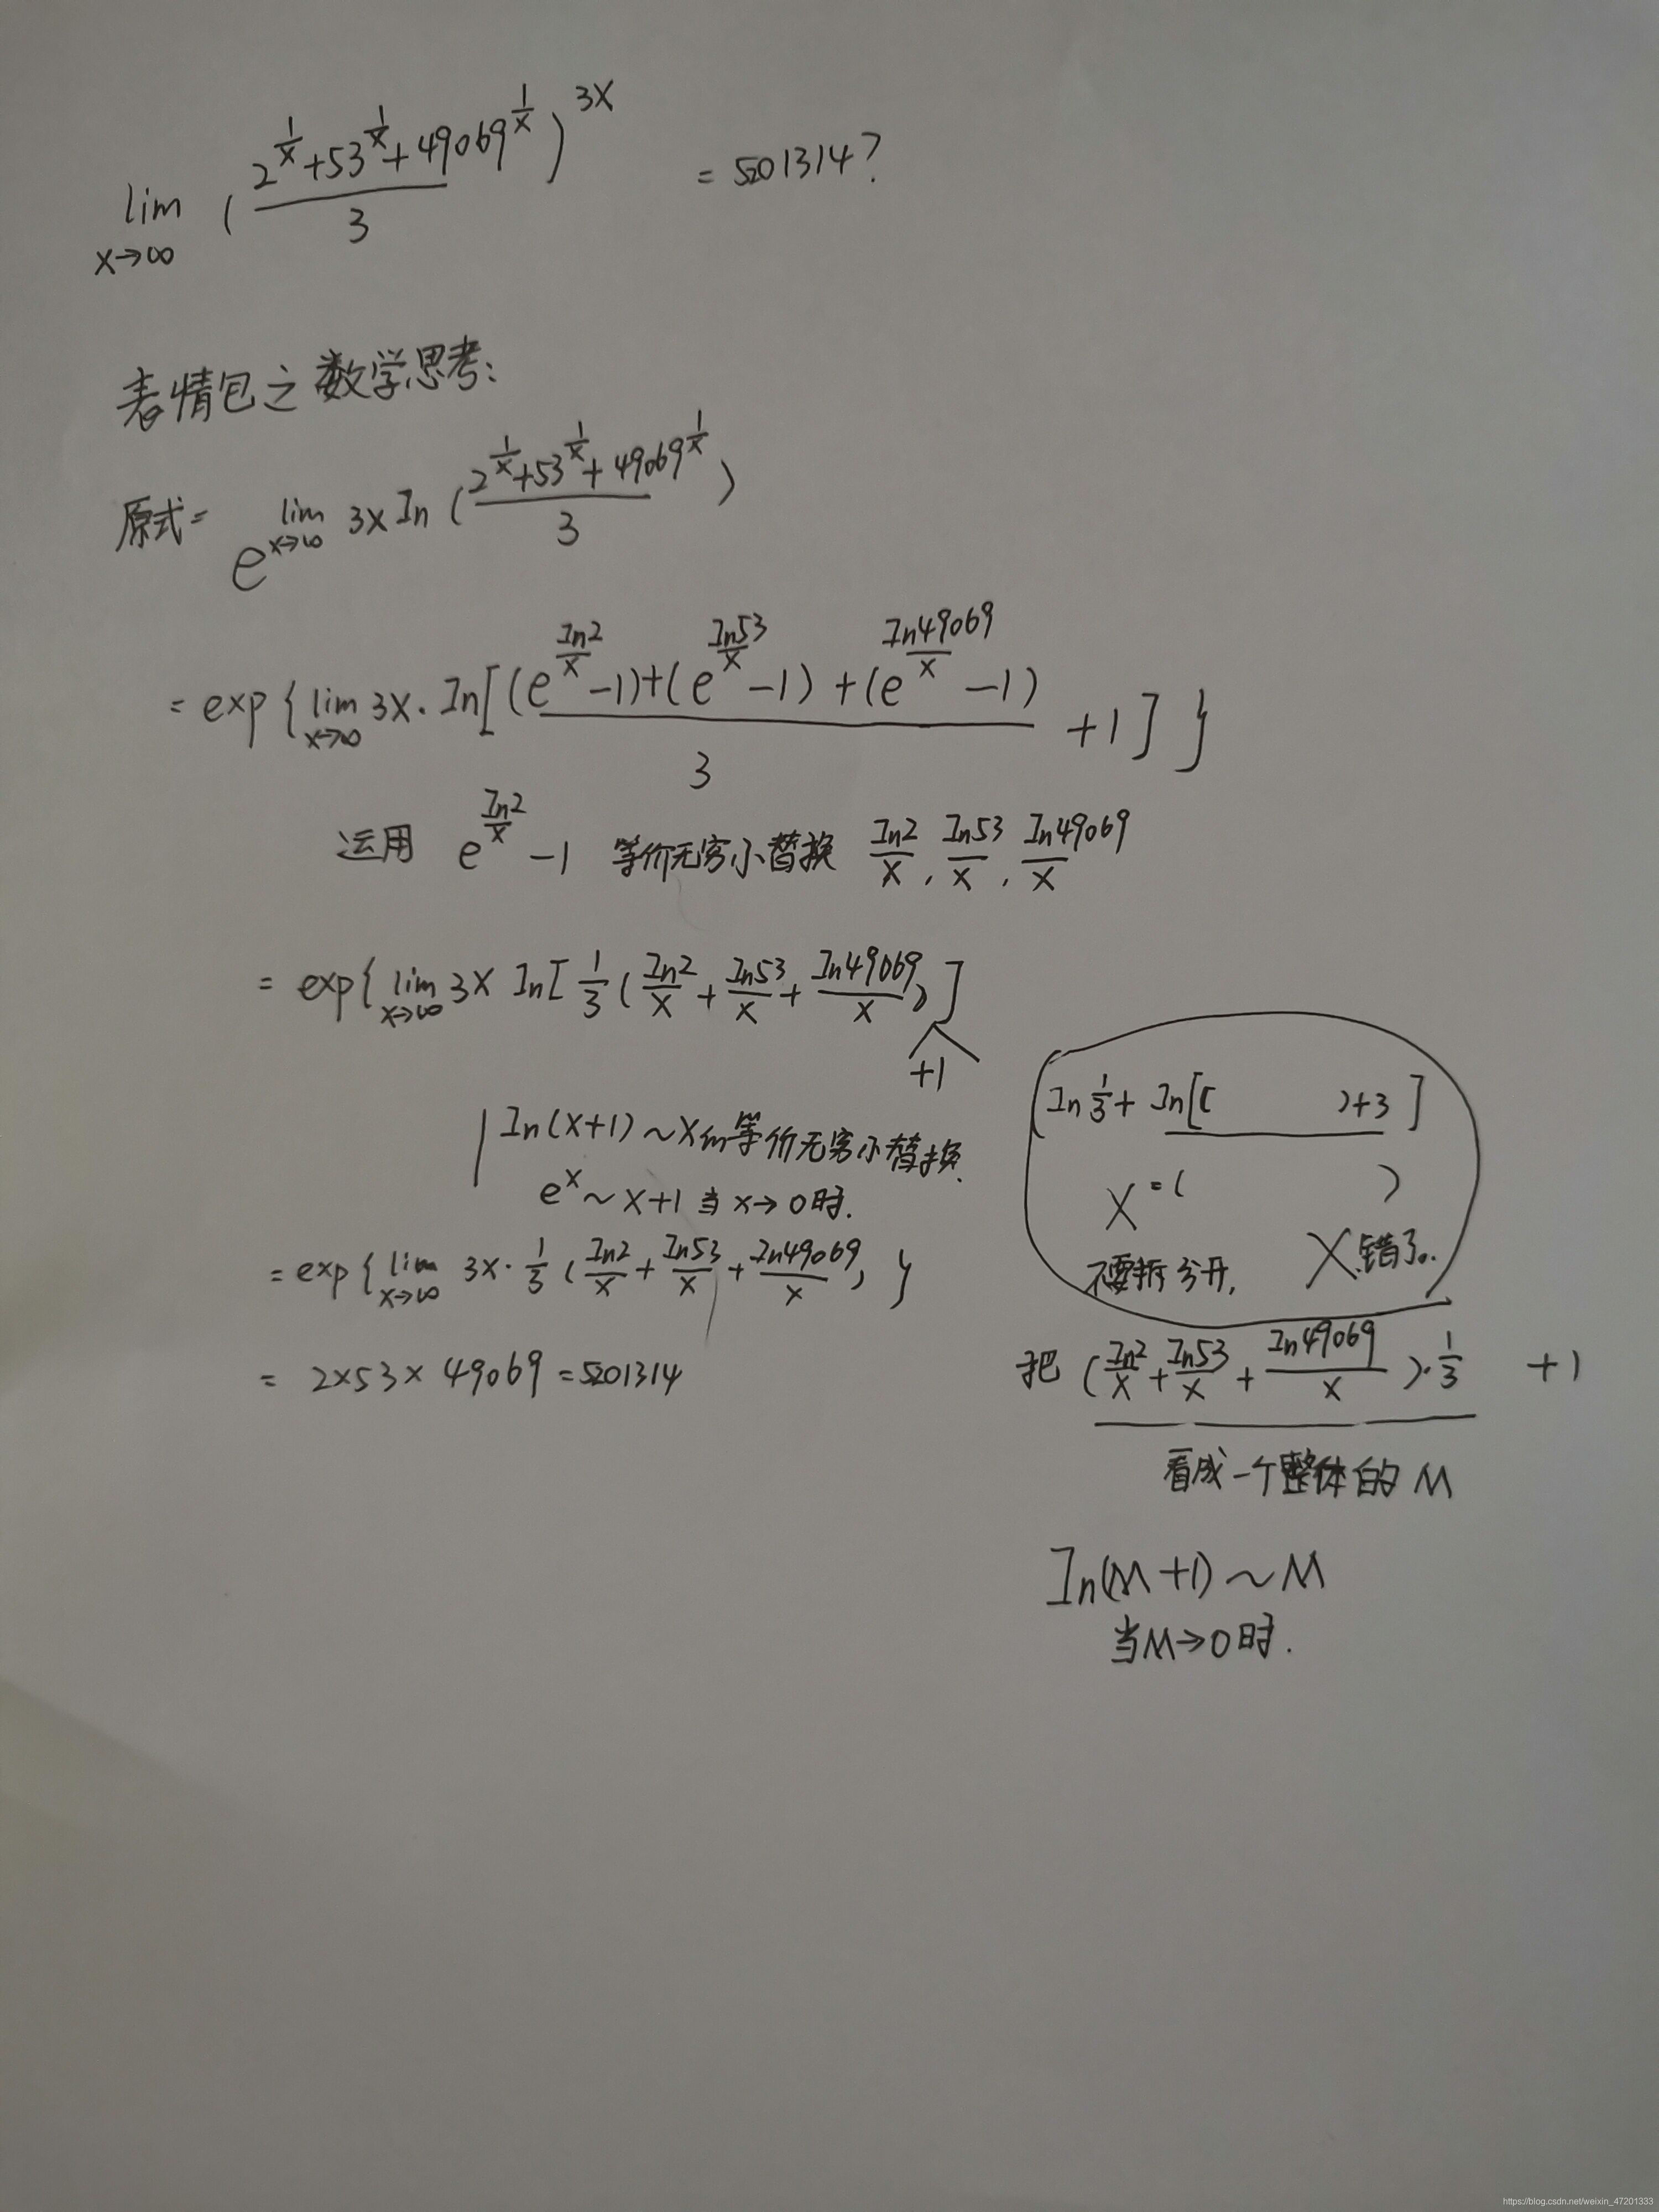 lim x→∞ ( (2^(1/x) + 53^(1/x) + 49069^(1/x)) / 3 )^(3x) = 5201314?
表情包之数学思考:
原式 = e^( lim x→∞ 3x In ( (2^(1/x) + 53^(1/x) + 49069^(1/x)) / 3 ) )
= exp { lim x→∞ 3x · In [ ( (e^(In2/x) - 1) + (e^(In53/x) - 1) + (e^(In49069/x) - 1) ) / 3 + 1 ] }
运用 e^(In2/x) - 1 等价无穷小替换 In2/x , In53/x , In49069/x
= exp { lim x→∞ 3x In [ 1/3 ( In2/x + In53/x + In49069/x ) ]
+1
In(x+1) ~ x的等价无穷小替换.
e^x ~ x+1 当 x→0时.
= exp { lim x→∞ 3x · 1/3 ( In2/x + In53/x + In49069/x ) }
= 2×53×49069 = 5201314
In 1/3 + In [ ( ) + 3 ]
X = ( )
不要拆分开, X 错了.
把 ( In2/x + In53/x + In49069/x ) · 1/3 + 1
看成一个整体的 M
In(M+1) ~ M
当M→0时.
https://blog.csdn.net/weixin_47201333